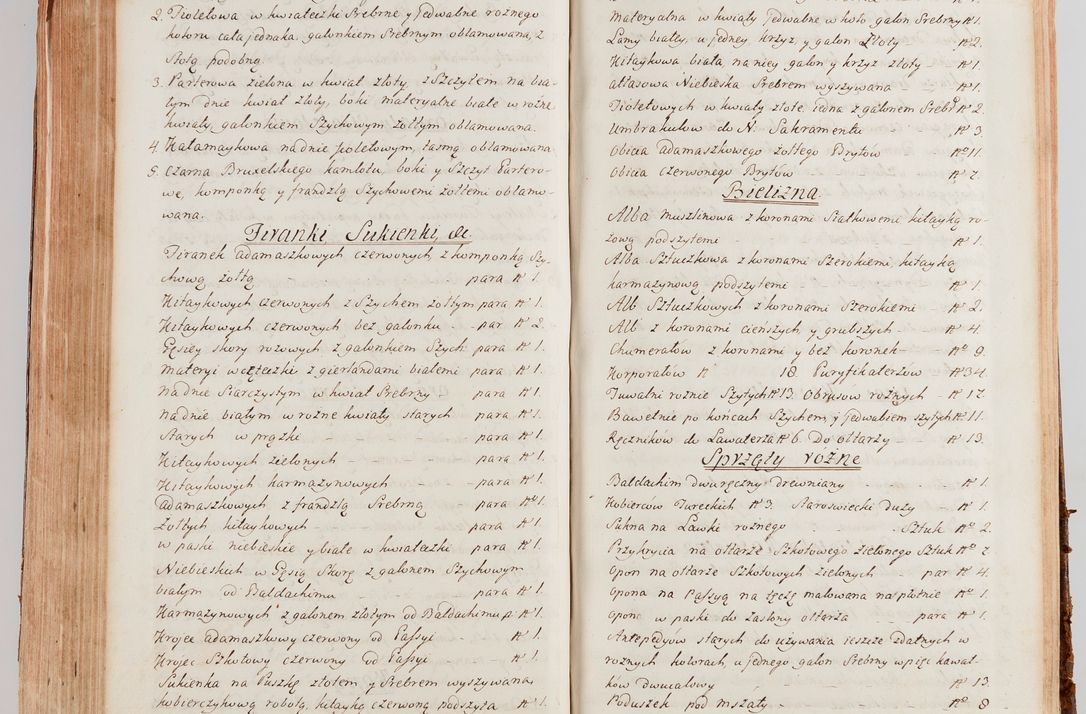 2. Fioletowa w kwiateczki Srebrne y Jedwabne rożnego
koloru cała jednaka galonkiem Srebrnym oblamowana, z
Stołą podobną.
3. Parterowa zielona w kwiat złoty, z Szczytem na bia-
łym dnie kwiat złoty, boki materyalne białe w rożne
kwiaty, galonkiem Szychowym żołtym oblamowana.
4. Kałamaykowa na dnie fioletowym, taśmą oblamowana
5. Czarna Bruxelskiego kamlotu, boki y Szczyt Partero-
we, komponką y frandzlą Szychowemi żołtemi oblamo-
wana.
Firanki Sukienki, &c.
Firanek adamaszkowych czerwonych, z komponką Szy-
chową żołtą para Nº 1.
Kitaykowych czerwonych z Szychem żołtym para Nº 1.
Kitaykowych czerwonych bez galonku - - par Nº 2.
Gęsiey skory rozowych z galonkiem Szych: para Nº 1.
Materyi w cęteczki z gierlandami białemi para Nº 1.
Na dnie Siarczystym w kwiat Srebrny - para Nº 1.
Na dnie białym w rożne kwiaty starych para Nº 1.
Starych w prążki - - - - para Nº 1.
Kitaykowych zielonych - - - para Nº 1.
Kitaykowych karmazynowych - - para Nº 1.
Adamaszkowych z frandzlą Srebrną - para Nº 1.
Zołtych kitaykowych - - - para Nº 1
w paski niebieskie y białe w kwiateczki para Nº 1.
Niebieskich w Gęsią Skorę z galonem Szychowym
białym od Baldachimu - - - para Nº 1.
Karmazynowych z galonem złotym od Baldachimu p: Nº 1.
Kroiec adamaszkowy czerwony od Passyi - Nº 1.
Kroiec Szkotowy czerwony od Passyi - - Nº 1.
Sukienka na Puszkę złotem y Srebrem wyszywana
kobierczykową robotą, kitayką czerwoną podszyta Nº 1.
Materyalna w kwiaty Jedwabne w koło galon Srebrny Nº 1.
Lamy białły, u jedney krzyż, y galon Złoty Nº 2.
Kitaykowa biała, na niey galon y krzyż złoty Nº 1.
atłasowa Niebieska Srebrem wyszywana Nº 1.
Fioletowych w kwiaty złote iedna z galonem Srebr: Nº 2.
Umbrakulow do N. Sakramentu - Nº 3.
Obicia adamaszkowego żołtego Brytow Nº 11.
Obicia czerwonego Brytow Nº 7.
Bielizna.
Alba muszlinowa z koronami Siatkowemi kitayką ro-
zową podszytemi - - - - Nº 1.
Alba Sztuczkowa z koronami Szerokiemi, kitayką
karmazynową podszytemi - - - Nº 1
Alb Sztuczkowych z koronami Szerokiemi - - Nº 2.
Alb z koronami cieńszych, y grubszych - - Nº 4.
Chumerałow z koronami y bez koronek - - Nº 9.
Korporałow Nº 18 Puryfikaterzow Nº 34.
Tuwalni rożnie Szytych Nº 13. Obrusow rożnych - Nº 17.
Bawełnie po końcach Szychem y jedwabiem szytych Nº 11.
Ręcznikow do Lawaterza Nº 6. Do ołtarzy - - Nº 13.
Sprzęty rożne
Baldachim dwuręczny drewniany - - Nº 1.
Kobiercow Tureckich Nº 3. Staroswiecki Duży - Nº 1.
Sukna na Ławki rożnego - - Sztuk Nº 2.
Przykrycia na ołtarze Szkotowego zielonego Sztuk Nº 7.
Opon na ołtarze Szkotowych zielonych - par Nº 4.
Opona na Passyą na tęczę malowana na płotnie Nº 1.
Opon w paski do zasłony ołtarza - para Nº 1.
Antepedyow starych do używania ieszcze zdatnych w
rożnych kolorach, u jednego galon Srebrny w pięc kawał-
kow dwucalowy - - - - Nº 13.
Poduszek pod mszały - - - - Nº 8